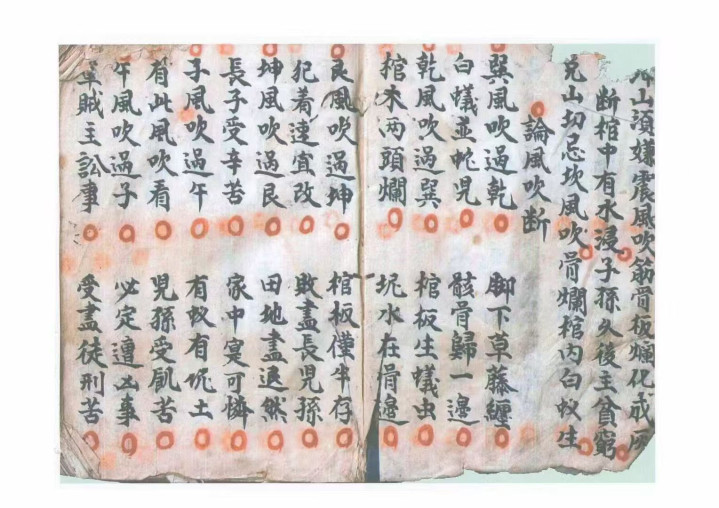 山須嫌震風吹筋骨板爛化成灰
断棺中有水浸子孫久後主貧窮
兑山切忌坎風吹骨爛棺内白蚁生
論風吹断
巽風吹過乾 脚下草藤纏
白蟻並蛇児 骸骨歸一邊
乾風吹過巽 棺板生蟻虫
棺木两頭爛 坭水在骨邊
艮風吹過坤 棺板僅半存
犯着速宜改 敗盡長児孫
坤風吹過艮 田地盡退然
長子受辛苦 家中寔可憐
子風吹過午 有蚁有坭土
有此風吹看 児孫受飢苦
午風吹過子 必定遭凶事
賊主訟事 受盡徒刑苦